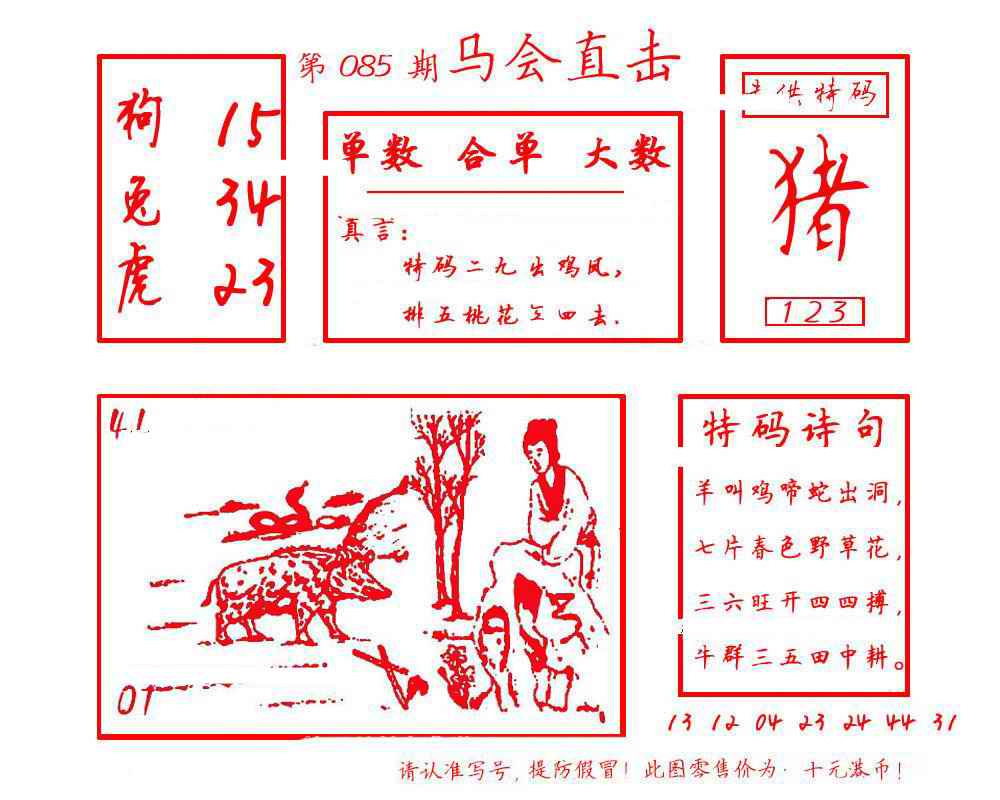 第 085 期 马会直击
狗 15
兔 34
虎 23
单数 合单 大数
真言：
特码二九出鸡凤，
排五桃花至四去.
主供特码
猪
1 2 3
41
01
特码诗句
羊叫鸡啼蛇出洞，
七片春色野草花，
三六旺开四四搏，
牛群三五田中耕。
13 12 04 23 24 44 31
请认准写号，提防假冒！此图零售价为·十元港币！